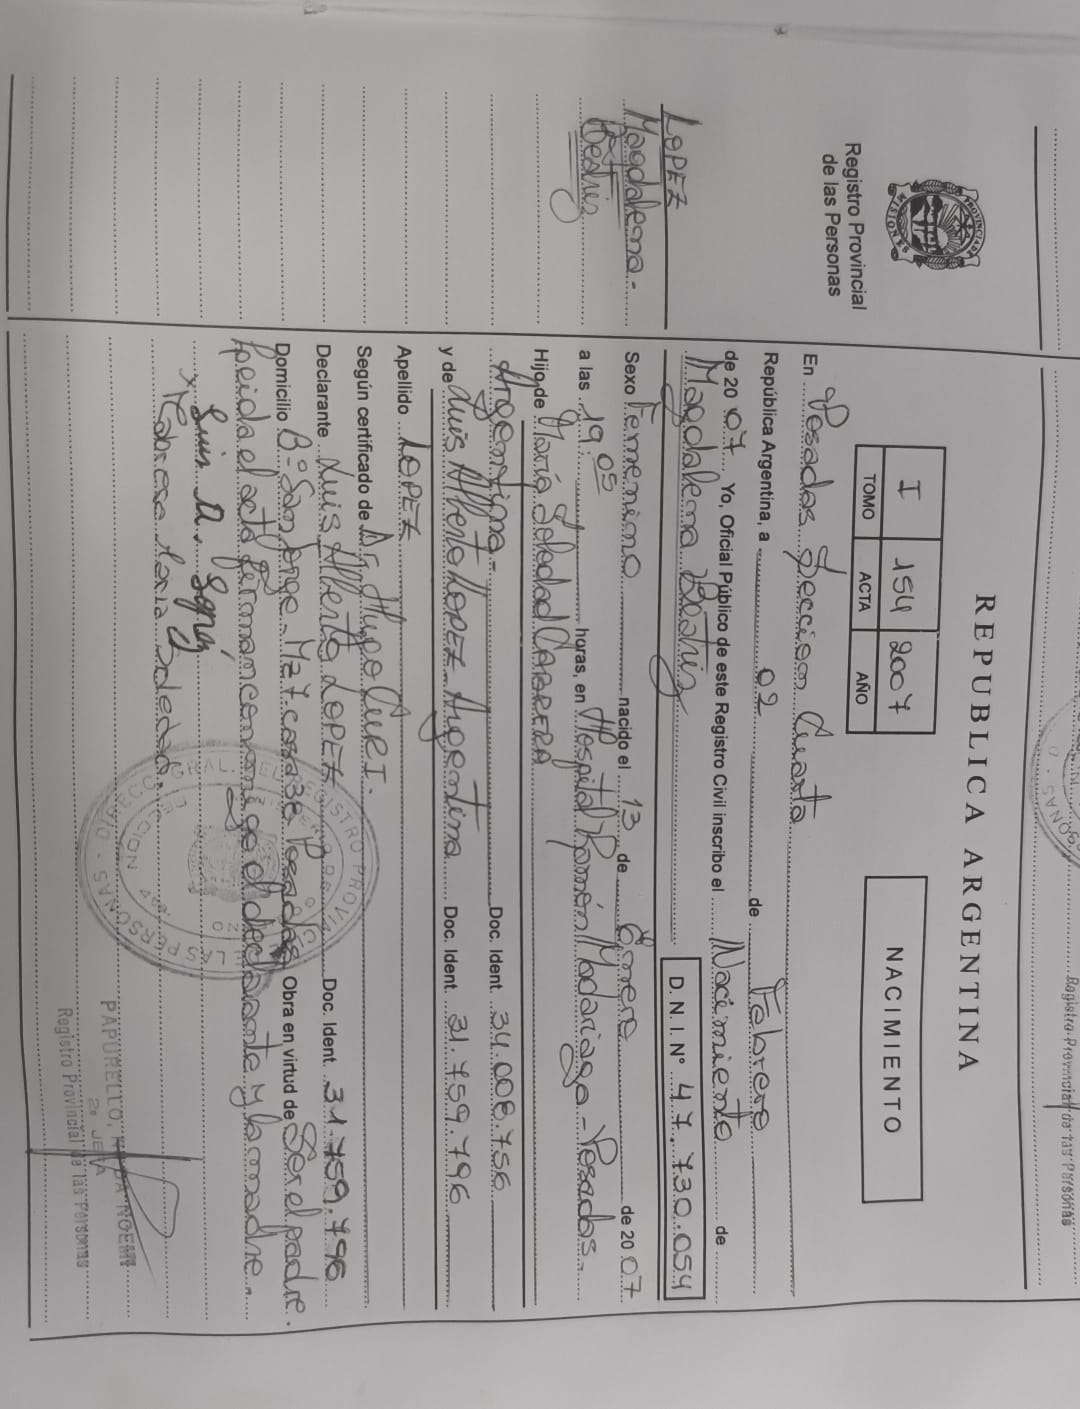 Registro Provincial de las Personas
REPUBLICA ARGENTINA
PROVINCIA DE MISIONES
Registro Provincial
de las Personas
I 154 2007
TOMO ACTA AÑO
NACIMIENTO
En Posadas Seccion Cuarta
República Argentina, a 02 de Febrero
de 2007 Yo, Oficial Público de este Registro Civil inscribo el Nacimiento de
Magdalena Beatriz D.N.I. Nº 47.730.054
LOPEZ
Magdalena
Beatriz
Sexo Femenino nacido el 13 de Enero de 2007
a las 19 05 horas, en Hospital Ramón Madariaga - Posadas.
Hijo de María Soledad CABRERA
Argentina Doc. Ident. 34.008.756
y de Luis Alberto LOPEZ Argentina Doc. Ident. 31.759.796
Apellido LOPEZ
Según certificado de Dr. Hugo CURI.
Declarante Luis Alberto LOPEZ Doc. Ident. 31.759.796
Domicilio Bº San Jorge - Mz 7. casa 38 Posadas Obra en virtud de Ser el padre.
Leida el acta firman conmigo el declarante y la madre.
Luis A.
Cabrera Maria Soledad.
PAPURELLO, NOEMI
2º JEFA
Registro Provincial de las Personas